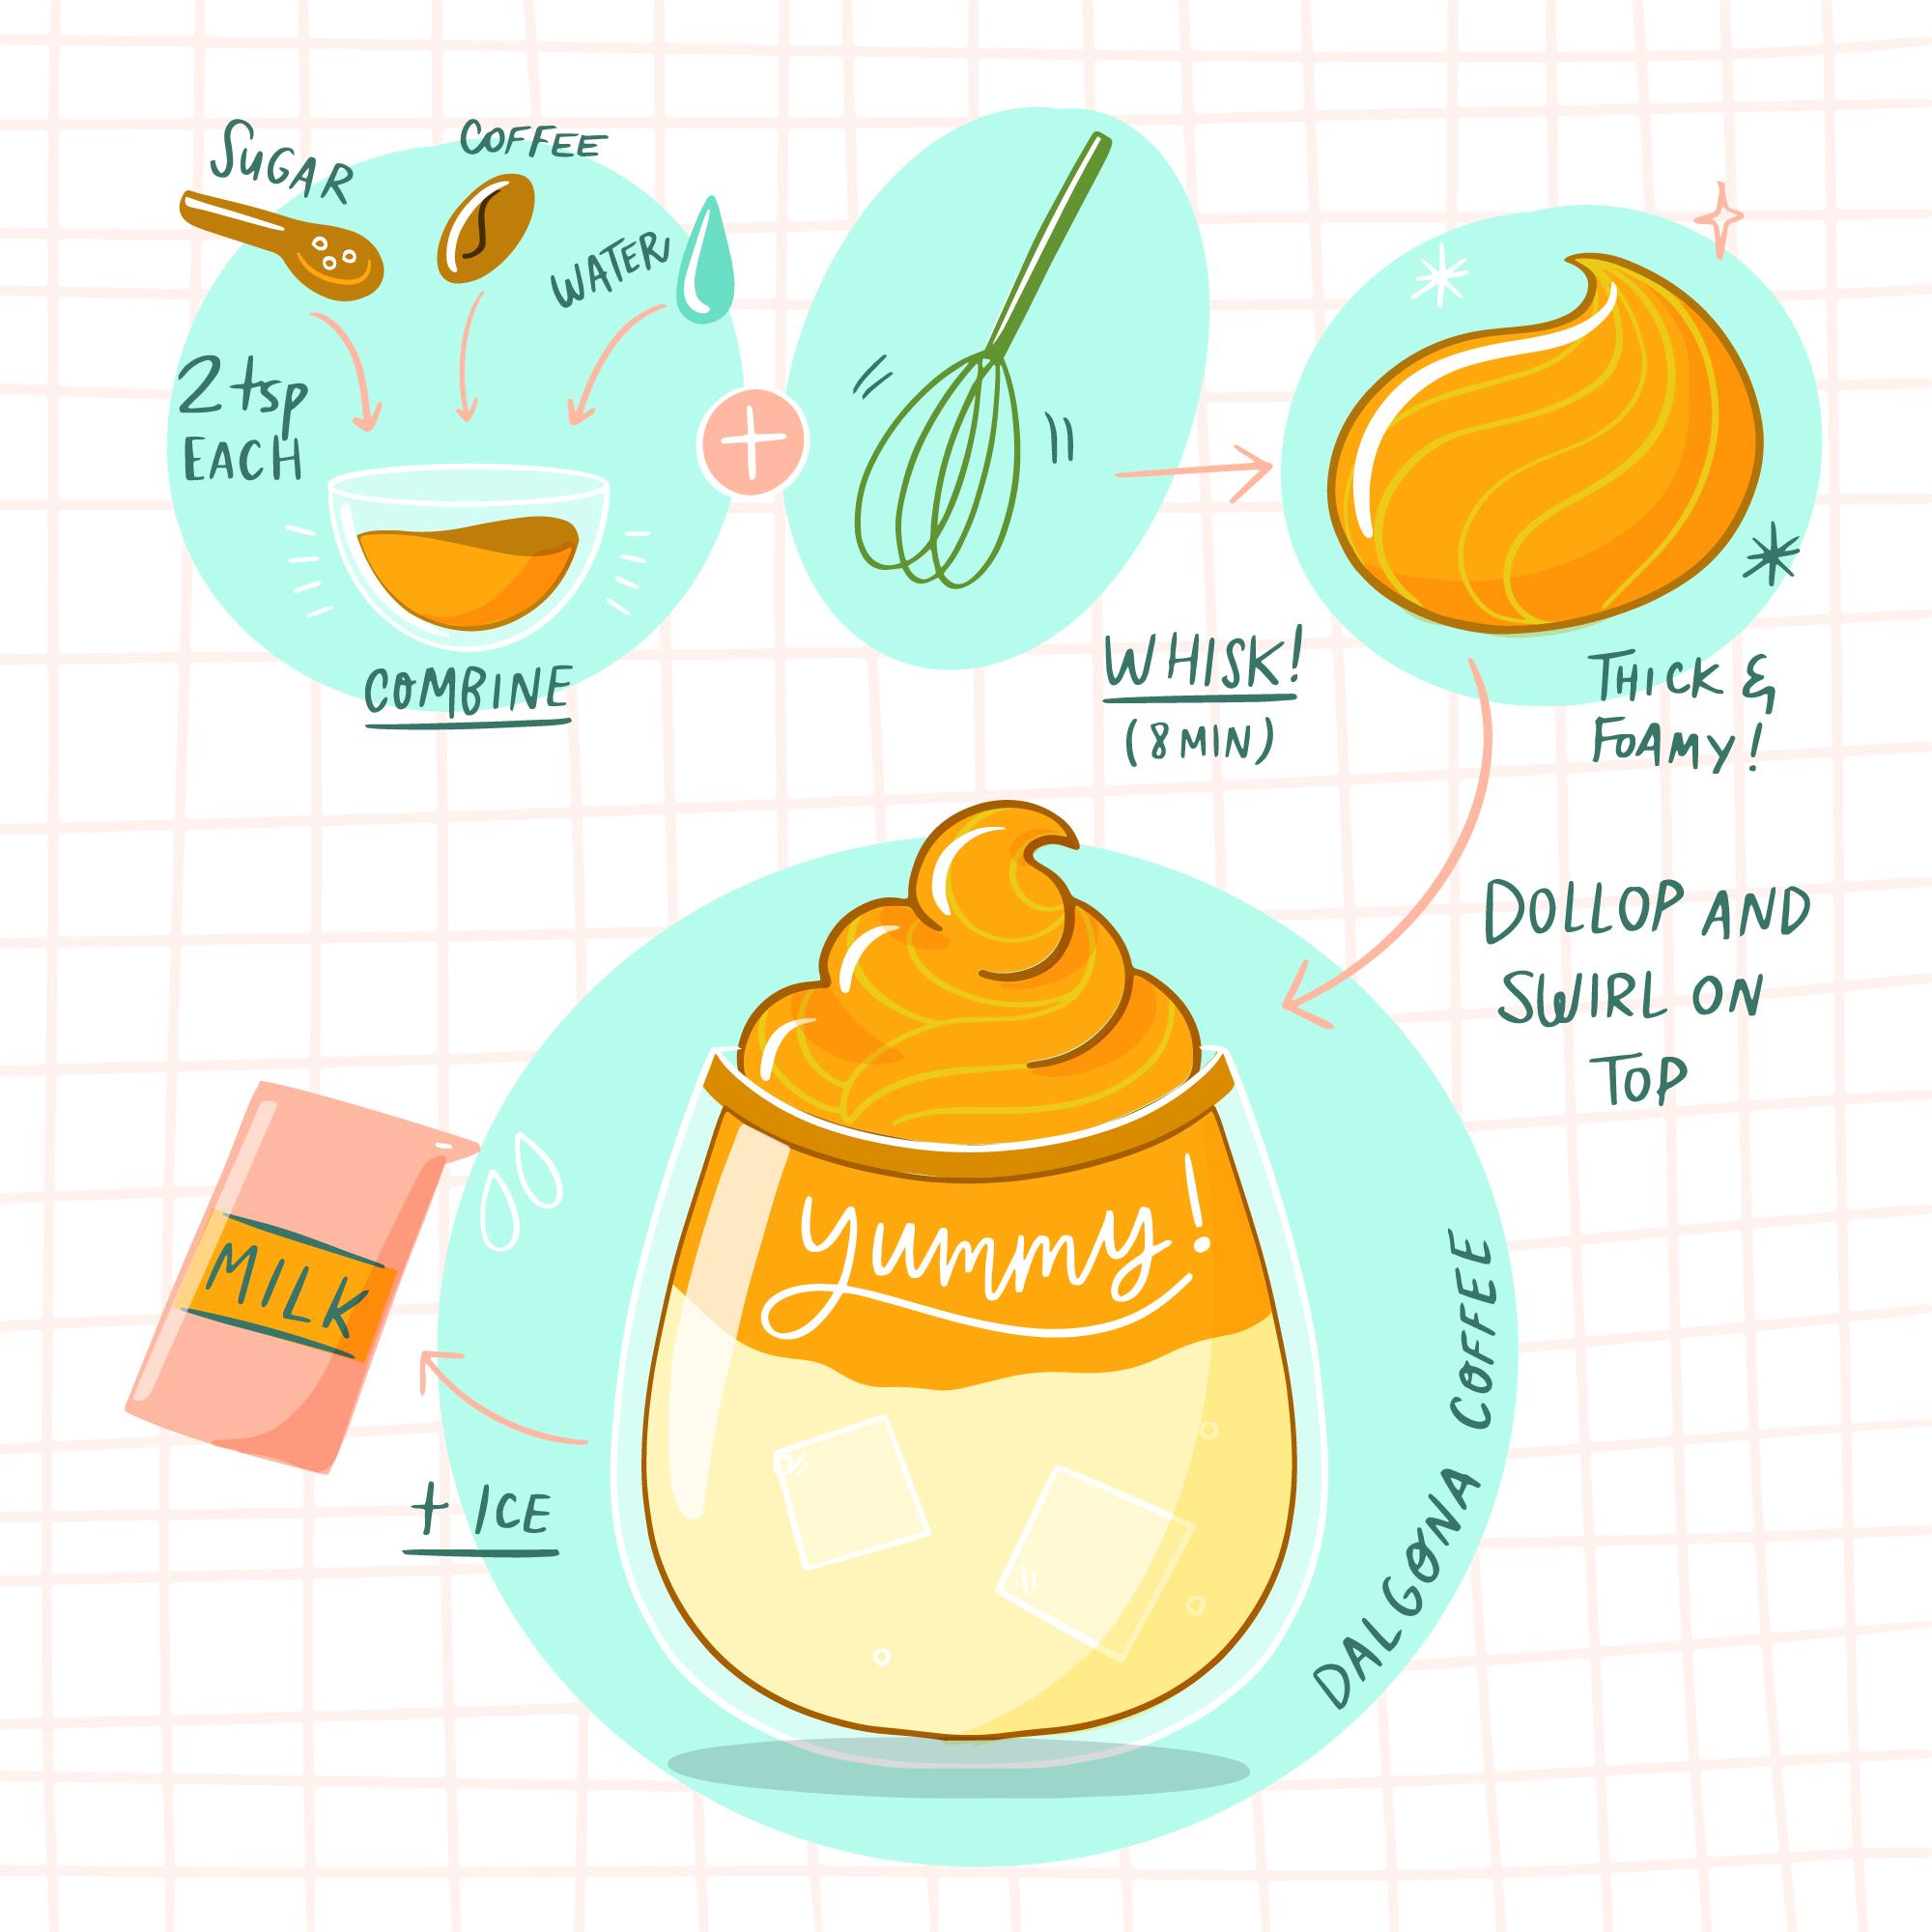 SUGAR
COFFEE
WATER
2 tsp
EACH
COMBINE
WHISK!
(8 MIN)
THICK &
FOAMY!
DOLLOP AND
SWIRL ON
TOP
MILK
+ ICE
yummy!
DALGONA COFFEE